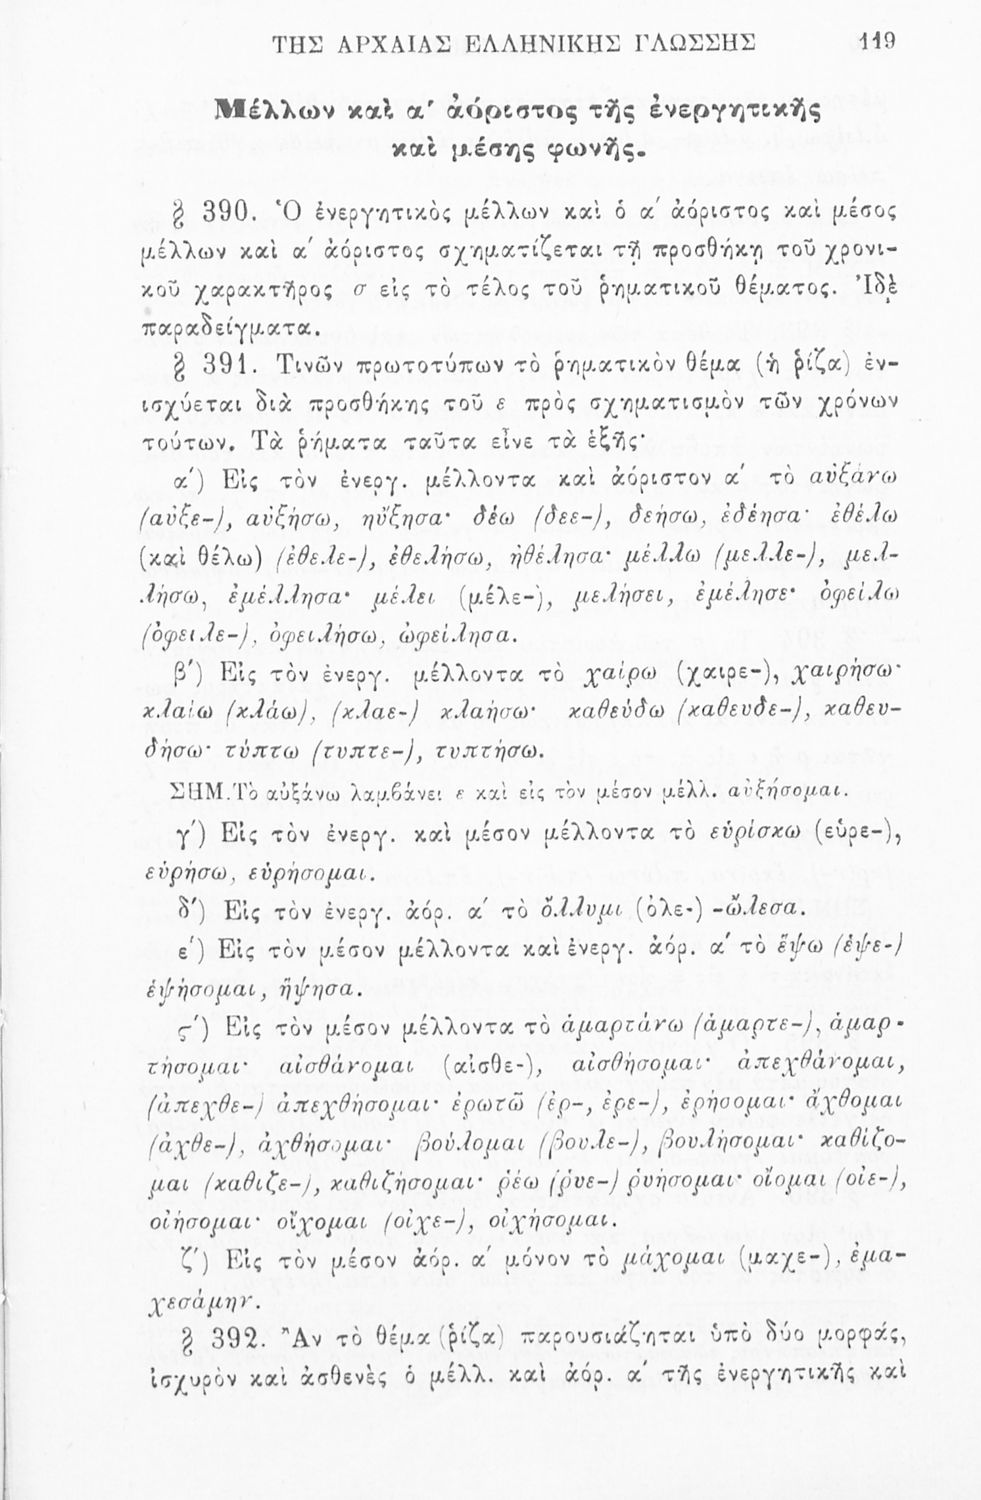 ΤΗΣ ΑΡΧΑΙΑΣ ΕΛΛΗΝΙΚΗΣ ΓΛΩΣΣΗΣ 119
Μέλλων καὶ α΄ ἀόριστος τῆς ἐνεργητικῆς
καὶ μέσης φωνῆς.
§ 390. Ὁ ἐνεργητικὸς μέλλων καὶ ὁ α΄ ἀόριστος καὶ μέσος
μέλλων καὶ α΄ ἀόριστος σχηματίζεται τῇ προσθήκῃ τοῦ χρονι-
κοῦ χαρακτῆρος σ εἰς τὸ τέλος τοῦ ῥηματικοῦ θέματος. Ἰδὲ
παραδείγματα.
§ 391. Τινῶν πρωτοτύπων τὸ ῥηματικὸν θέμα (ἡ ῥίζα) ἐν-
ισχύεται διὰ προσθήκης τοῦ ε πρὸς σχηματισμὸν τῶν χρόνων
τούτων. Τὰ ῥήματα ταῦτα εἶνε τὰ ἑξῆς·
α΄) Εἰς τὸν ἐνεργ. μέλλοντα καὶ ἀόριστον α΄ τὸ αὐξάνω
(αὐξε-), αὐξήσω, ηὔξησα· δέω (δεε-), δεήσω, ἐδέησα· ἐθέλω
(καὶ θέλω) (ἐθελε-), ἐθελήσω, ἠθέλησα· μέλλω (μελλε-), μελ-
λήσω, ἐμέλλησα· μέλει (μέλε-), μελήσει, ἐμέλησε· ὀφείλω
(ὀφειλε-), ὀφειλήσω, ὠφείλησα.
β΄) Εἰς τὸν ἐνεργ. μέλλοντα τὸ χαίρω (χαιρε-), χαιρήσω·
κλαίω (κλάω), (κλαε-) κλαήσω· καθεύδω (καθευδε-), καθευ-
δήσω· τύπτω (τυπτε-), τυπτήσω.
ΣΗΜ. Τὸ αὐξάνω λαμβάνει ε καὶ εἰς τὸν μέσον μέλλ. αὐξήσομαι.
γ΄) Εἰς τὸν ἐνεργ. καὶ μέσον μέλλοντα τὸ εὑρίσκω (εὑρε-),
εὑρήσω, εὑρήσομαι.
δ΄) Εἰς τὸν ἐνεργ. ἀόρ. α΄ τὸ ὄλλυμι (ὀλε-) -ὤλεσα.
ε΄) Εἰς τὸν μέσον μέλλοντα καὶ ἐνεργ. ἀόρ. α΄ τὸ ἕψω (ἑψε-)
ἑψήσομαι, ἥψησα.
ϛ΄) Εἰς τὸν μέσον μέλλοντα τὸ ἁμαρτάνω (ἁμαρτε-), ἁμαρ-
τήσομαι· αἰσθάνομαι (αἰσθε-), αἰσθήσομαι· ἀπεχθάνομαι,
(ἀπεχθε-) ἀπεχθήσομαι· ἐρωτῶ (ἐρ-, ἐρε-), ἐρήσομαι· ἄχθομαι
(ἀχθε-), ἀχθήσομαι· βούλομαι (βουλε-), βουλήσομαι· καθίζο-
μαι (καθιζε-), καθιζήσομαι· ῥέω (ῥυε-) ῥυήσομαι· οἴομαι (οἰε-),
οἰήσομαι· οἴχομαι (οἰχε-), οἰχήσομαι.
ζ΄) Εἰς τὸν μέσον ἀόρ. α΄ μόνον τὸ μάχομαι (μαχε-), ἐμα-
χεσάμην.
§ 392. Ἂν τὸ θέμα (ῥίζα) παρουσιάζηται ὑπὸ δύο μορφάς,
ἰσχυρὸν καὶ ἀσθενὲς ὁ μέλλ. καὶ ἀόρ. α΄ τῆς ἐνεργητικῆς καὶ